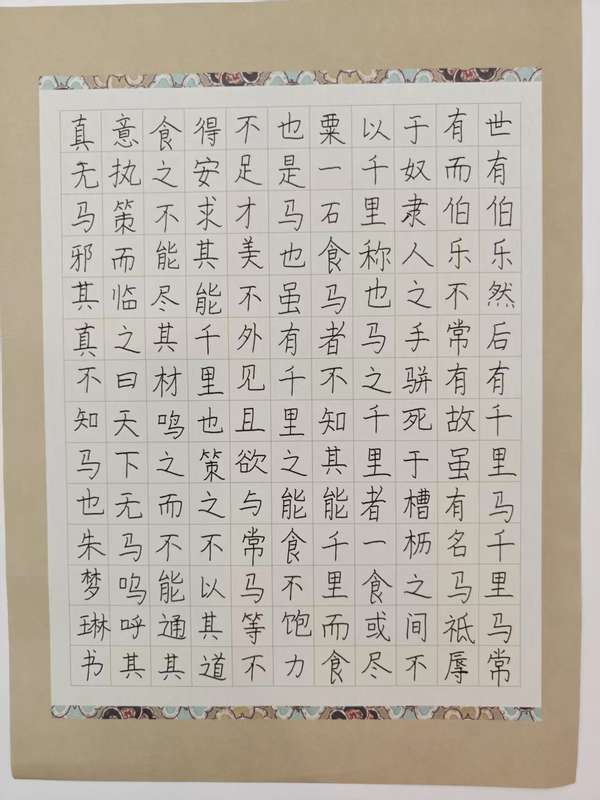 世有伯乐然后有千里马千里马常
有而伯乐不常有故虽有名马祗辱
于奴隶人之手骈死于槽枥之间不
以千里称也马之千里者一食或尽
粟一石食马者不知其能千里而食
也是马也虽有千里之能食不饱力
不足才美不外见且欲与常马等不
得安求其能千里也策之不以其道
食之不能尽其材鸣之而不能通其
意执策而临之曰天下无马呜呼其
真无马邪其真不知马也朱梦琳书